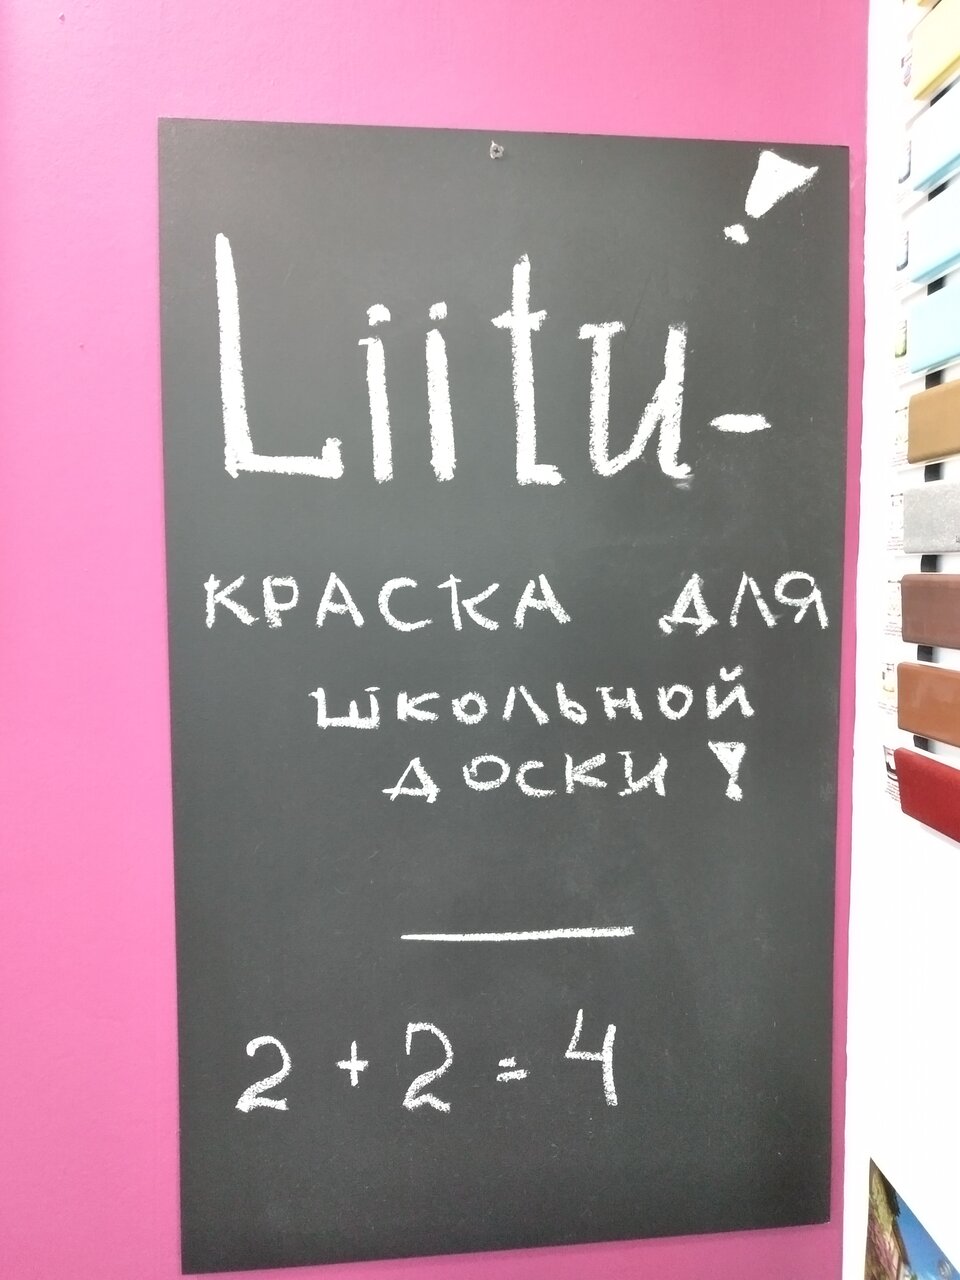 Liitu-!
КРАСКА ДЛЯ
ШКОЛЬНОЙ
ДОСКИ!
2 + 2 = 4